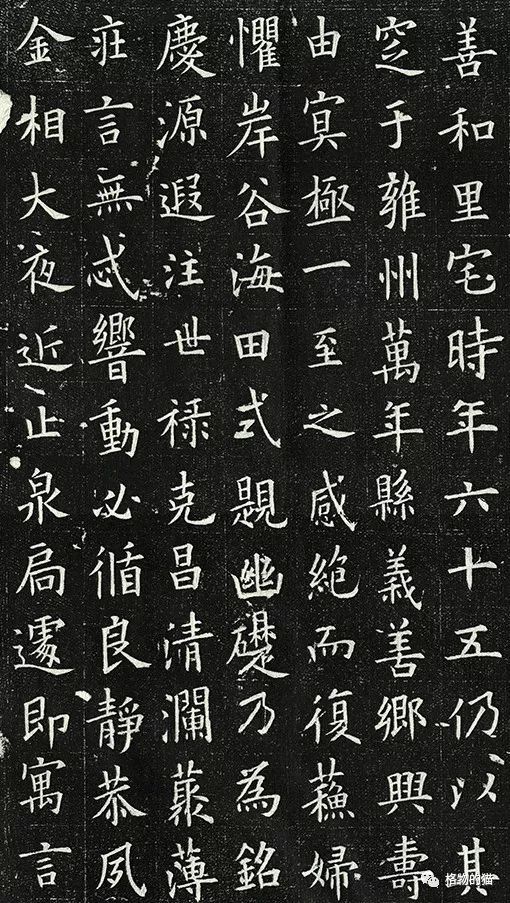 善和里宅時年六十五仍以其
窆于雍州萬年縣義善鄉興壽
由冥極一至之感絶而復蘇婦
懼岸谷海田式題幽礎乃為銘
慶源遐注世禄克昌清瀾藂薄
莊言無忒響動必循良靜恭夙
金相大夜近止泉扃遽即寓言
格物的猫